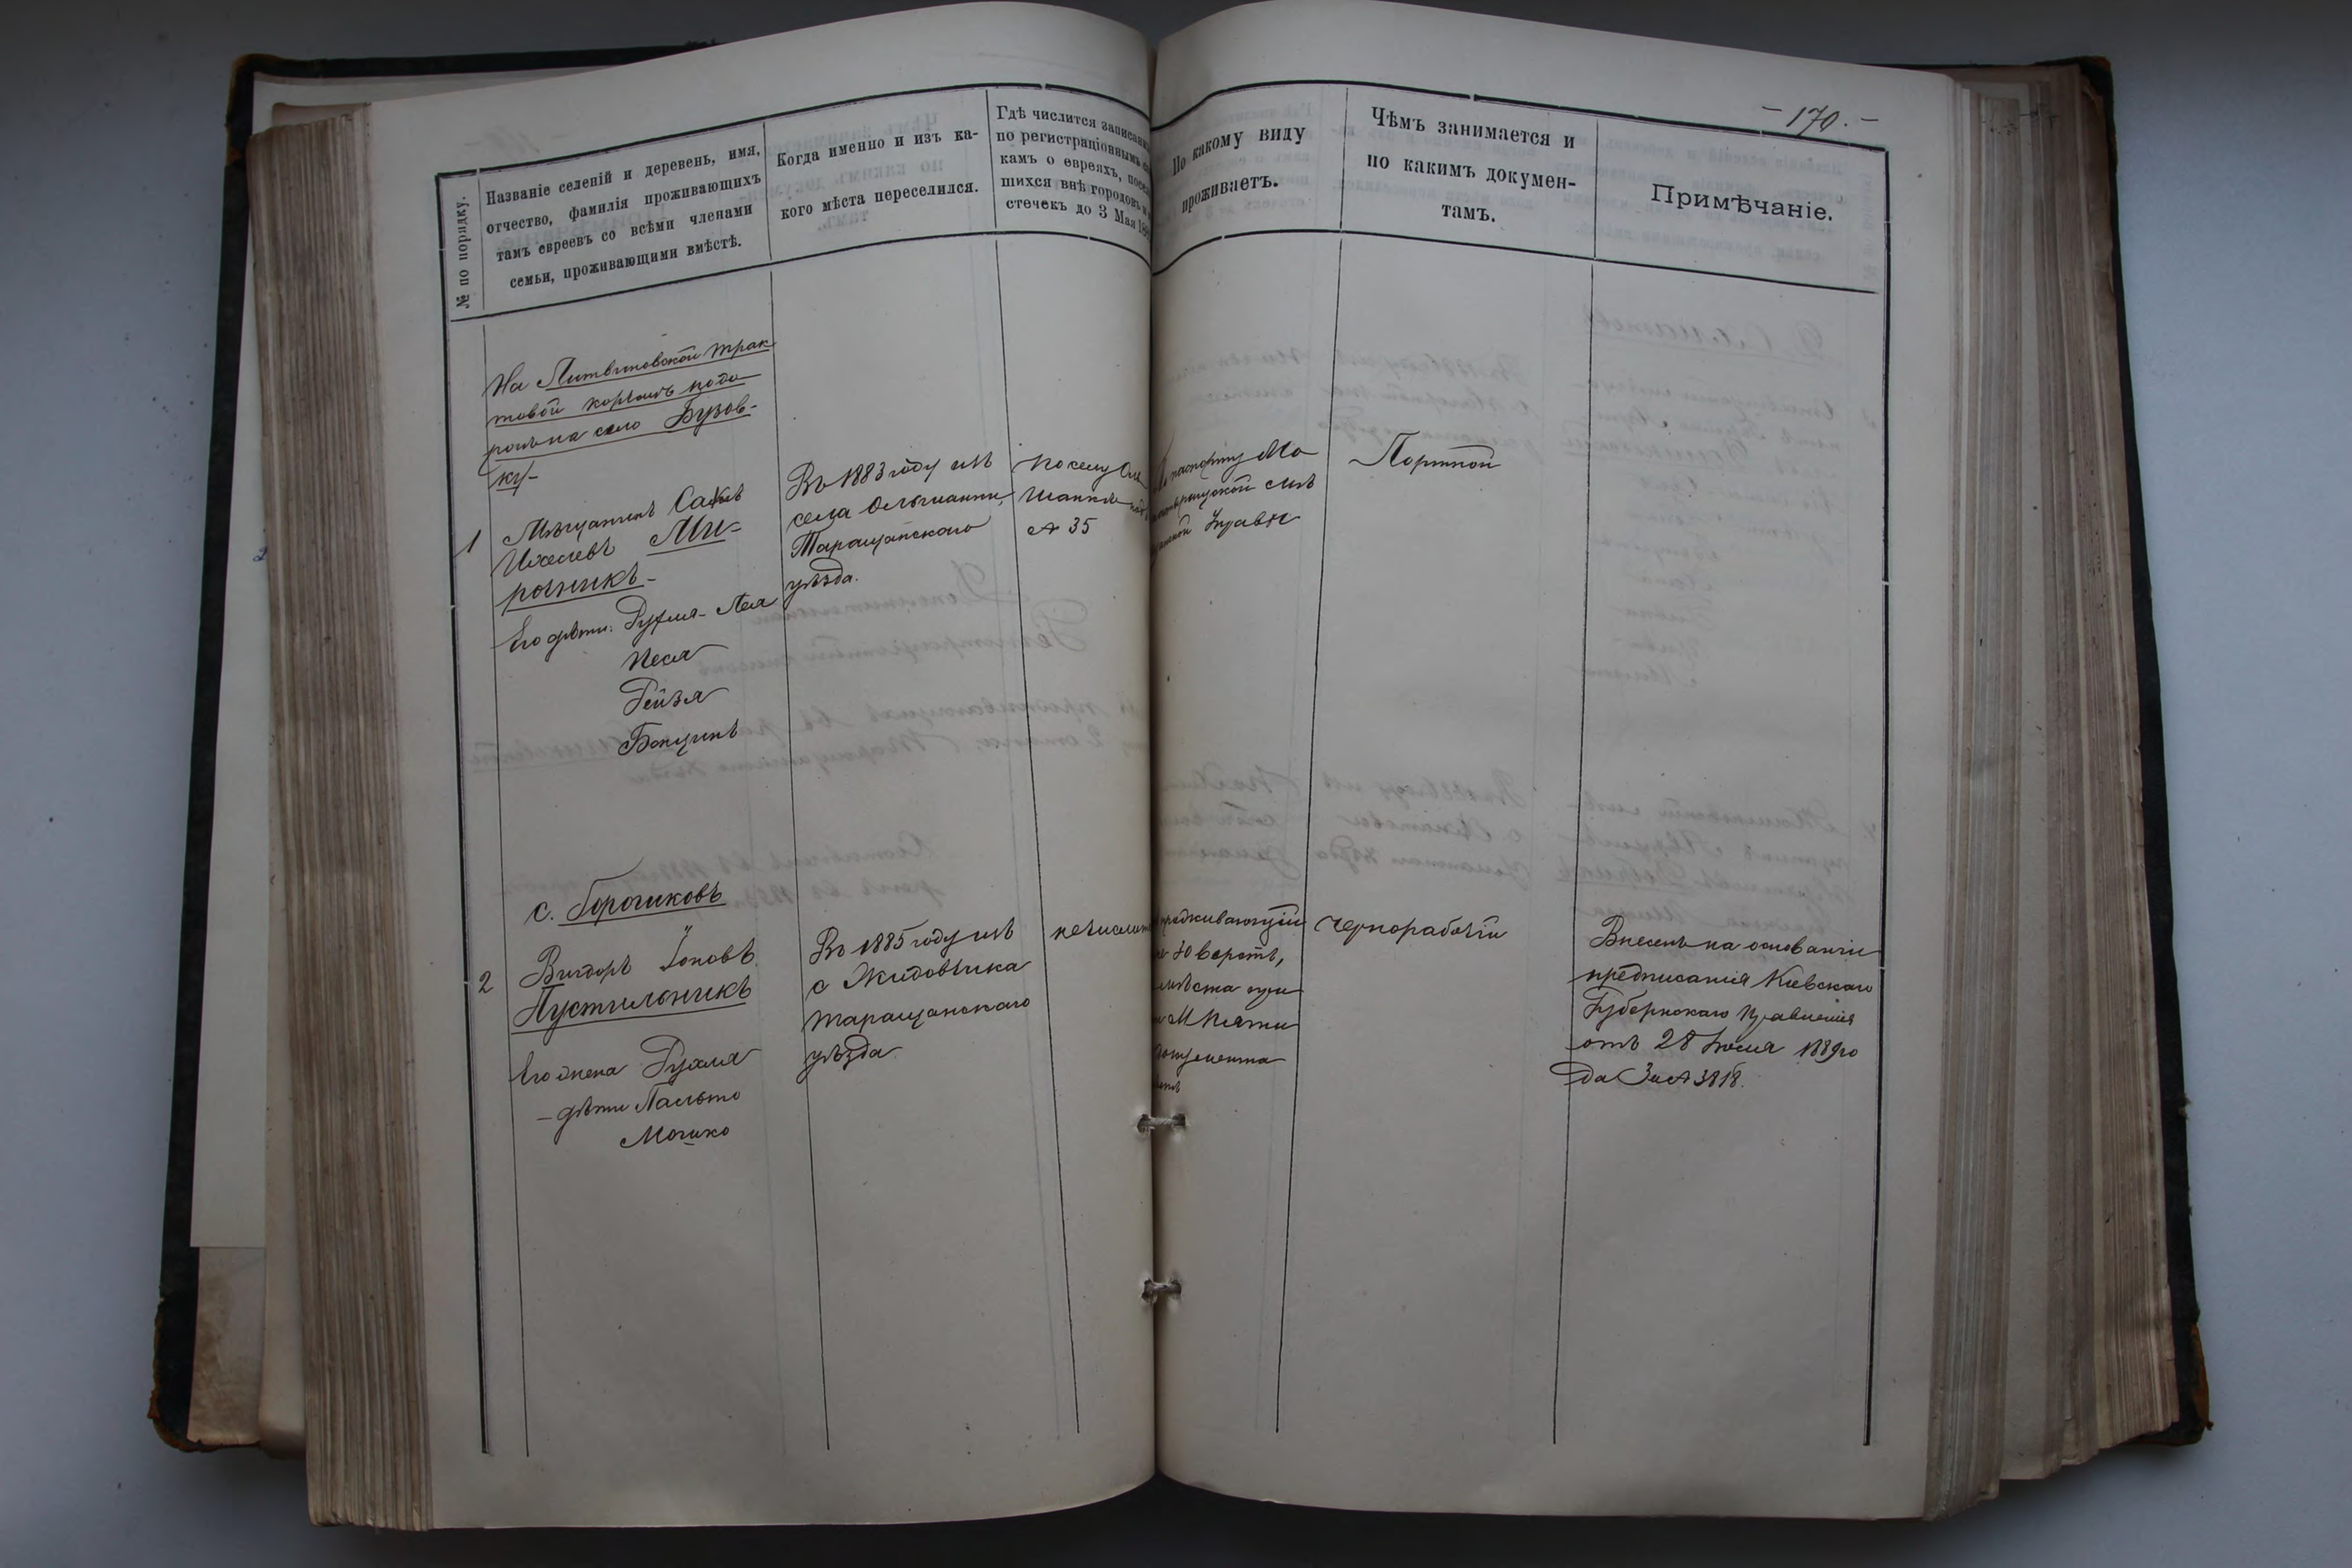 - 170. -
№ по порядку.
Названіе селеній и деревень, имя,
отчество, фамилія проживающихъ
тамъ евреевъ со всѣми членами
семьи, проживающими вмѣстѣ.
Когда именно и изъ ка-
кого мѣста переселился.
Гдѣ числится записан
по регистраціоннымъ
камъ о евреяхъ, посел
шихся внѣ городовъ и
стечекъ до 3 Мая 18
По какому виду
проживаетъ.
Чѣмъ занимается и
по какимъ докумен-
тамъ.
Примѣчаніе.
На Литвиновской трак
товой корчмѣ
село Бузов-
ку-
1
Мѣщанинъ
Ми-
рочникъ-
Его дѣти: Рухля-Лея
Песя
Рейзя
Бенцинъ
Въ 1883 году изъ
села Ольшанки,
Таращанскаго
уѣзда.
По селу Оль
шанкѣ
№ 35
паспорту
Управы
Портной
с. Горошковъ
2
Вигдоръ Іоновъ
Пустильникъ
Его жена Рухля
- дѣти Пальто
Мошко
Въ 1885 году изъ
с Жидовчика
таращанскаго
уѣзда
не числит
проживающій
верстъ,
документа
Чернорабочій
Внесенъ на основаніи
предписанія Кіевскаго
Губернскаго Правленія
отъ 28 Іюля 1889 го
да За № 3818.